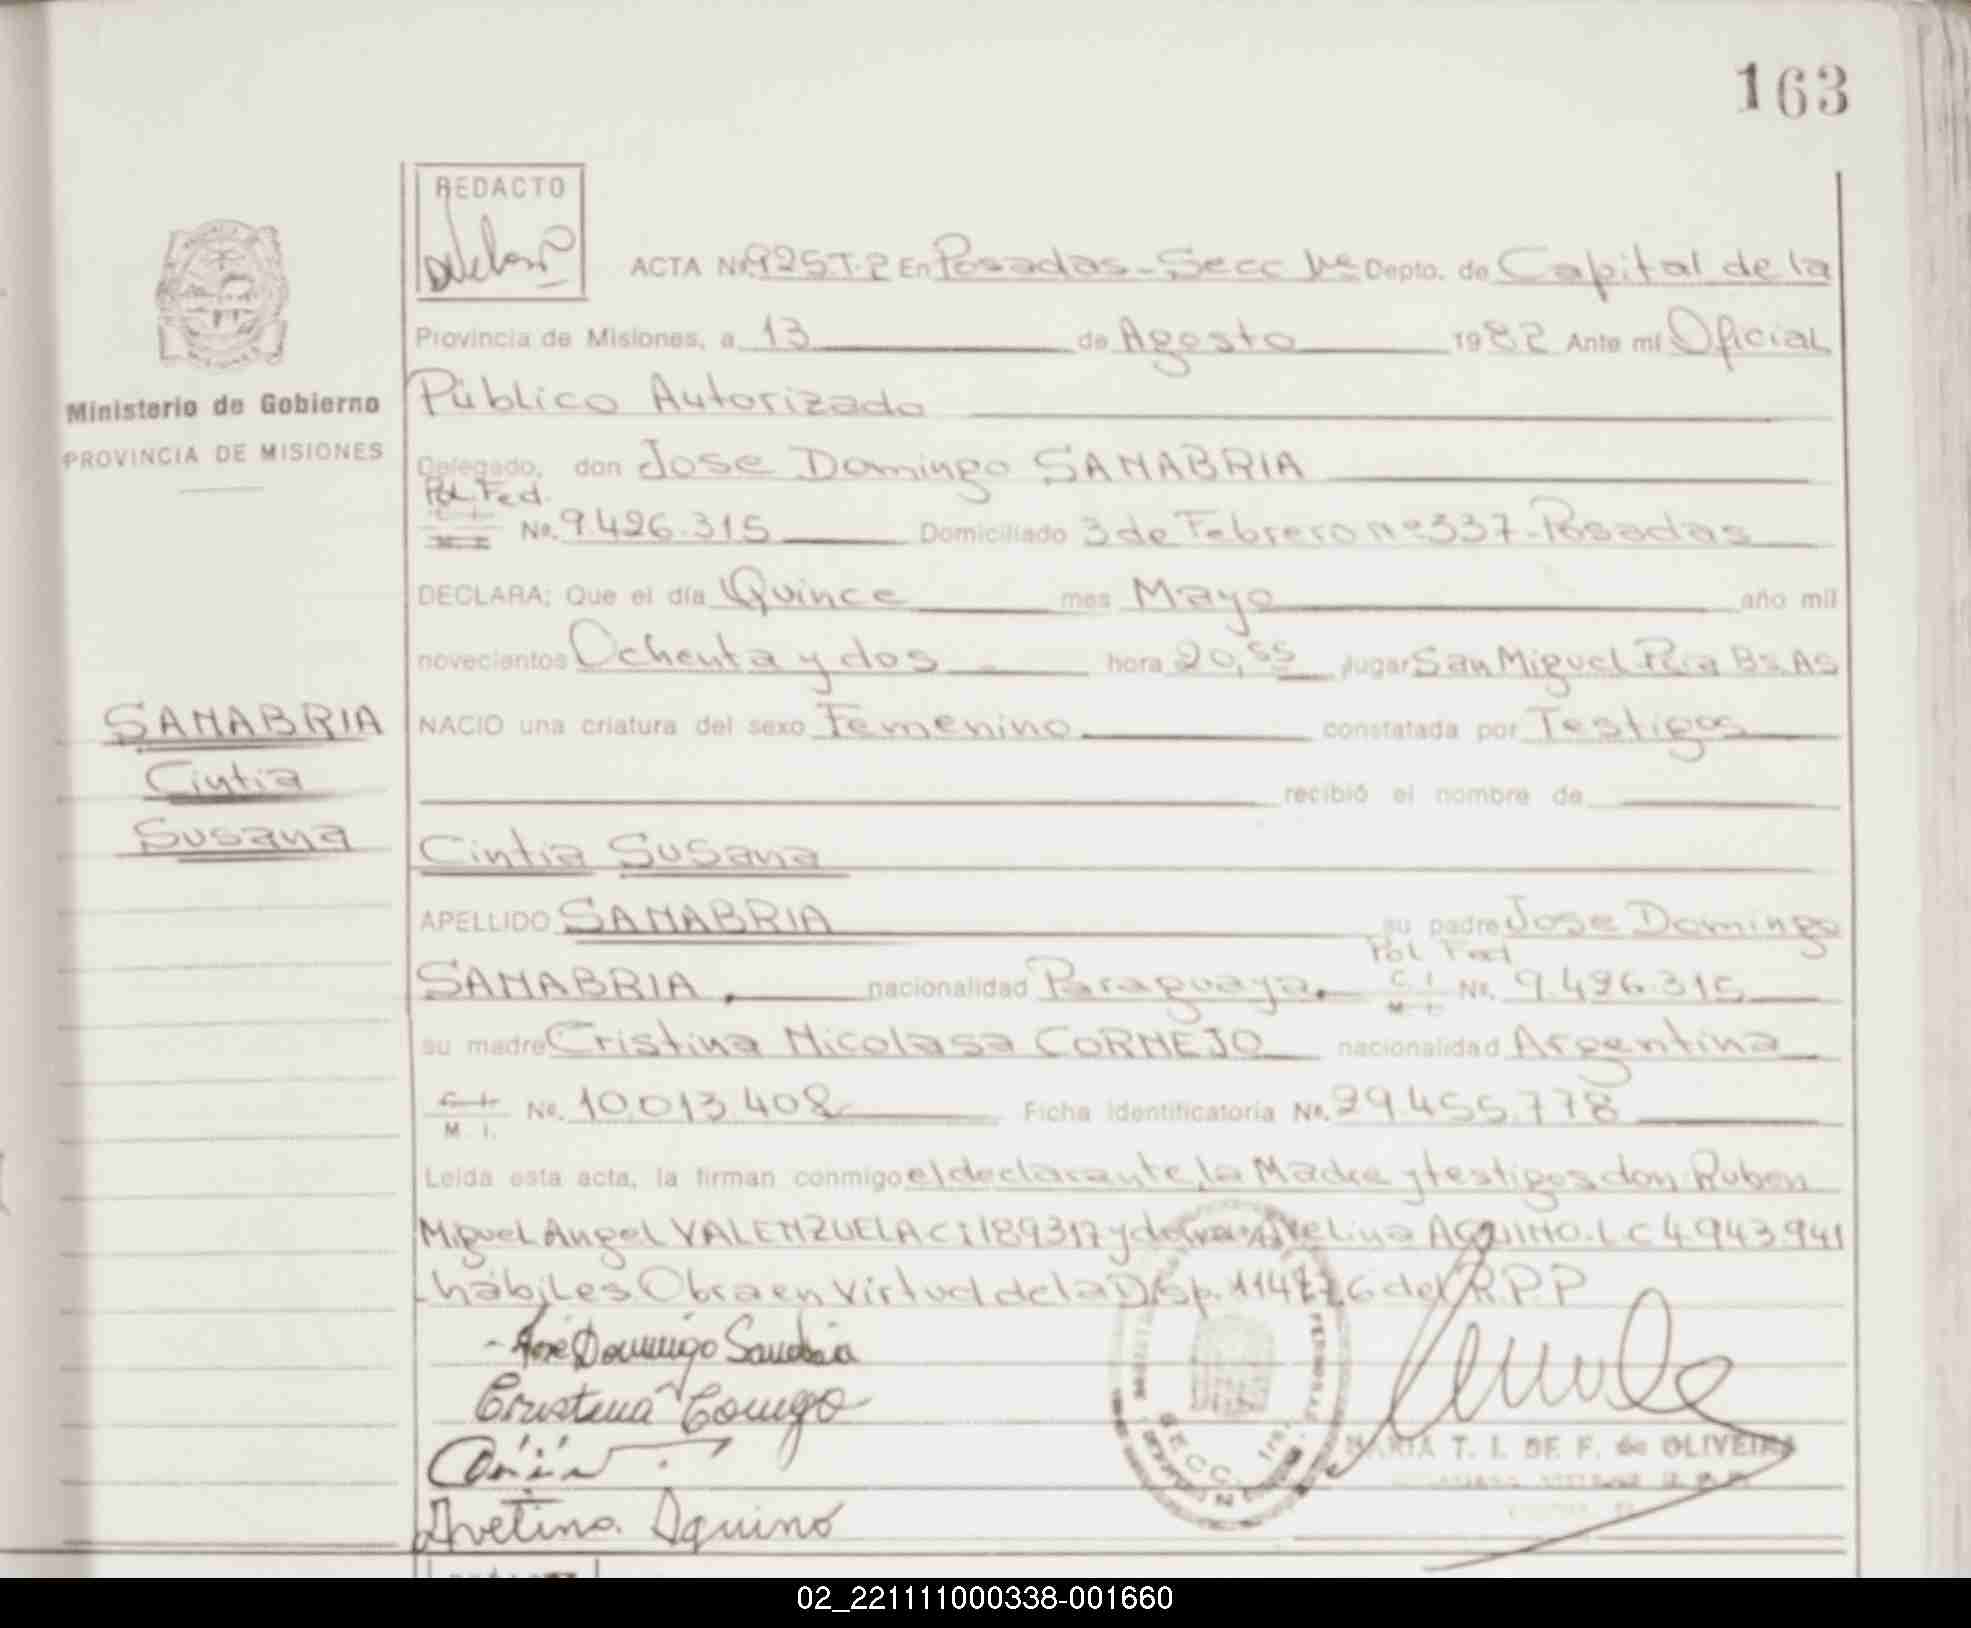 163
REDACTO
ACTA Nº 925 T-2 En Posadas - Secc 1ª Depto. de Capital de la
Provincia de Misiones, a 13 de Agosto 1982 Ante mí Oficial
Público Autorizado
Ministerio de Gobierno
PROVINCIA DE MISIONES
Delegado, don Jose Domingo SANABRIA
Pol. Fed.
C. I.
M. I. No. 9.426.315 Domiciliado 3 de Febrero nº 337 - Posadas
DECLARA: Que el día Quince mes Mayo año mil
novecientos Ochenta y dos hora 20,55 lugar San Miguel Pcia Bs. As
SANABRIA
Cintia
Susana
NACIO una criatura del sexo Femenino constatada por Testigos
recibió el nombre de
Cintia Susana
APELLIDO SANABRIA su padre Jose Domingo
Pol Fed
SANABRIA. nacionalidad Paraguaya. C. I.
M. I. No. 9.426.315
su madre Cristina Nicolasa CORNEJO nacionalidad Argentina
C. I.
M. I. No. 10.013.408 Ficha identificatoria No. 29.455.778
Leída esta acta, la firman conmigo el declarante, la Madre y testigos don Ruben
Miguel Angel VALENZUELA C i 189317 y doña Avelina AQUINO. L C 4.943.941
hábiles Obra en Virtud de la Disp. del R.P.P
José Domingo Sanabria
Cristina Cornejo
Avelina Aquino
SECC.
MARIA T. I. DE F. de OLIVEIRA
02_221111000338-001660